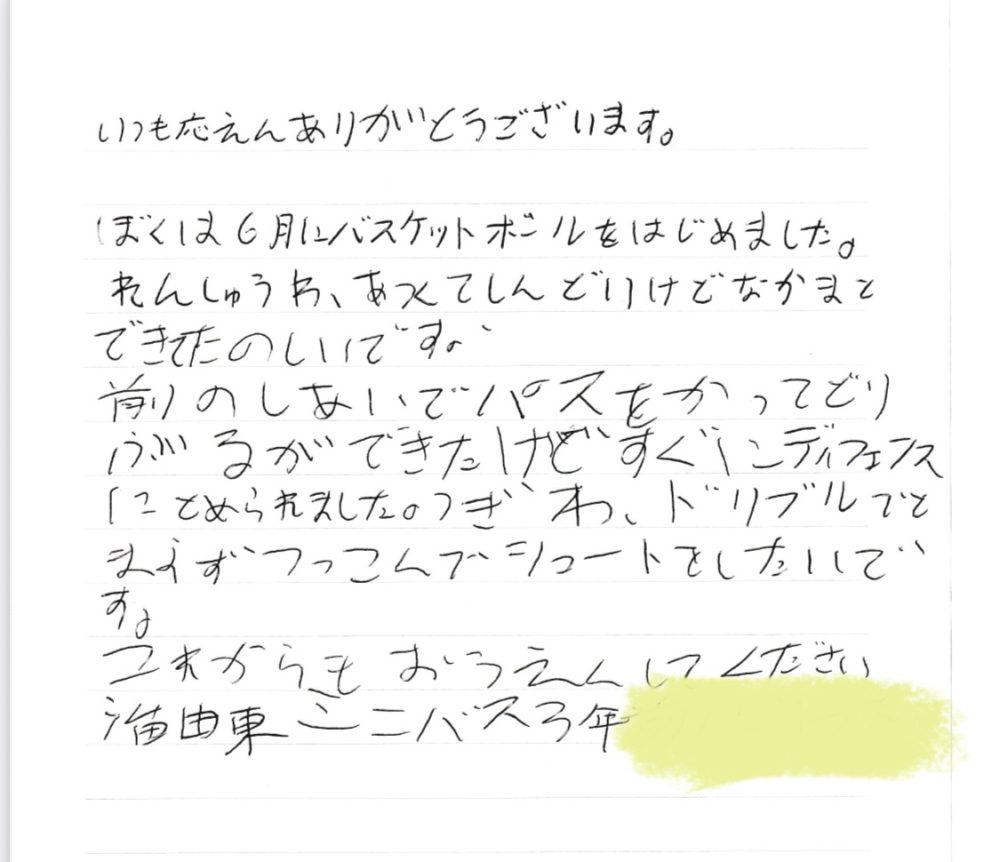 いつも応えんありがとうございます。
ぼくは6月にバスケットボールをはじめました。
れんしゅうわ、あつくてしんどいけどなかまと
できてたのしいです。
前のしあいでパスをかってどり
ぶるができたけどすぐにディフェンス
にとめられました。つぎわ、ドリブルでと
まらずつっこんでシュートをしたいで
す。
これからもおうえんしてください
東ミニバス3年